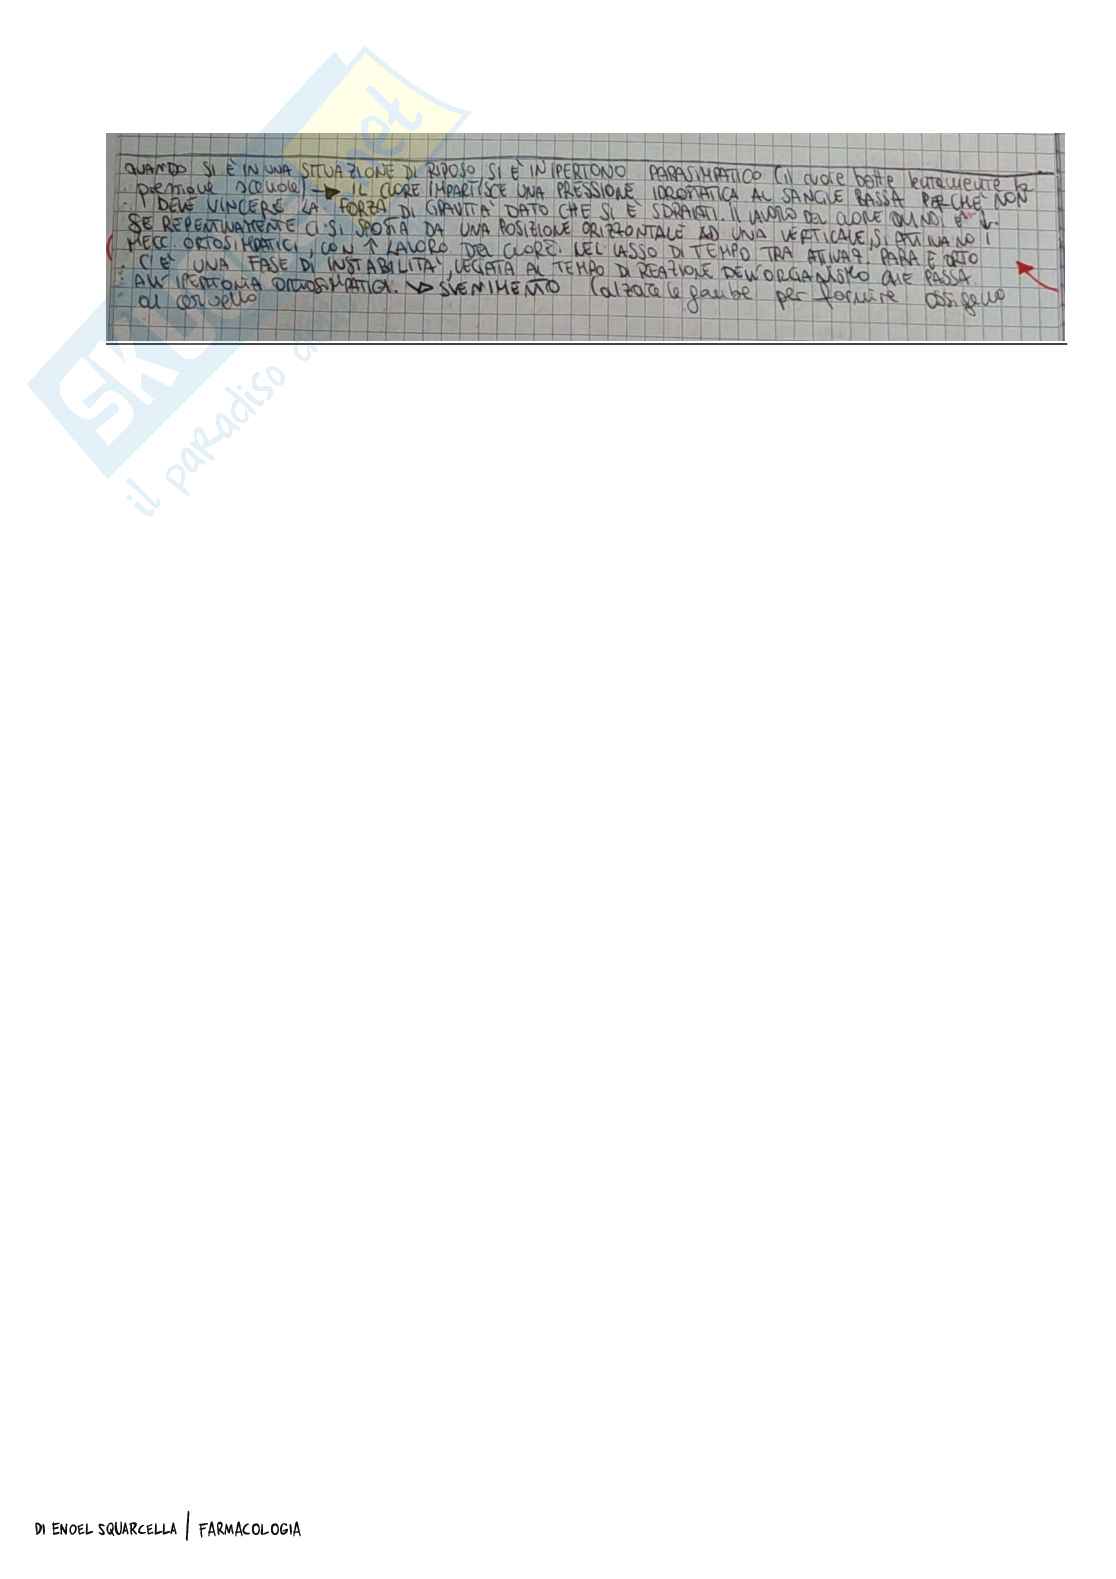 QUANDO SI È IN UNA SITUAZIONE DI RIPOSO, SI È IN IPERTONO PARASIMPATICO (il cuore batte lentamente la
pressione scende) → IL CUORE IMPARTISCE UNA PRESSIONE IDROSTATICA AL SANGUE BASSA PERCHÈ NON
DEVE VINCERE LA FORZA DI GRAVITÀ DATO CHE SI È SDRAIATI. IL LAVORO DEL CUORE QUINDI È ↓.
SE REPENTINAMENTE CI SI SPOSTA DA UNA POSIZIONE ORIZZONTALE AD UNA VERTICALE, SI ATTIVANO I
MECC. ORTOSIMPATICI, CON ↑ LAVORO DEL CUORE. NEL LASSO DI TEMPO TRA ATTIVAZ. PARA E ORTO
C'È UNA FASE DI INSTABILITÀ, LEGATA AL TEMPO DI REAZIONE DELL'ORGANISMO CHE PASSA
ALL'IPERTONIA ORTOSIMPATICA. → SVENIMENTO (alzare le gambe per fornire ossigeno
al cervello
SKU .net
il paradiso
DI ENOEL SQUARCELLA | FARMACOLOGIA